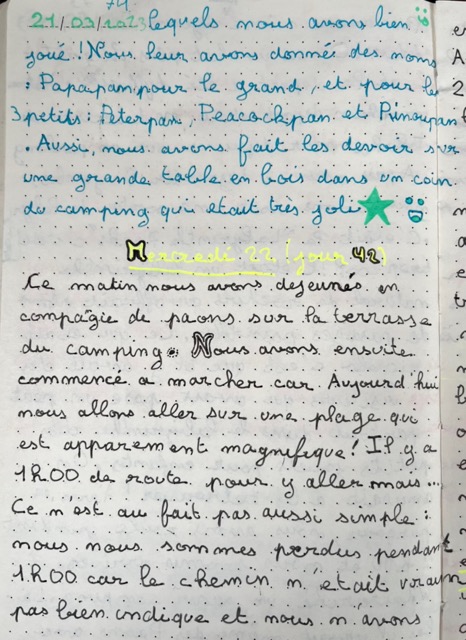 74
21/03/2023 lequels nous avons bien
joué ! Nous leur avons donné des noms
: Papapan pour le grand, et pour le
3 petits : Peterpan, Peacockpan et Pinoupan
. Aussi, nous avons fait les devoir sur
une grande table en bois dans un coin
du camping qui etait très joli
Mercredi 22 (jour 42)
Ce matin nous avons dejeunés en
compagie de paons sur la terrasse
du camping. Nous avons ensuite
commencé a marcher car Aujourd'hui
nous allons aller sur une plage qui
est apparement magnifique ! Il y a
1h00 de route pour y aller mais...
Ce n'est au fait pas aussi simple :
nous nous sommes perdus pendant
1h00 car le chemin n'était vraim
pas bien indique et nous n'avons